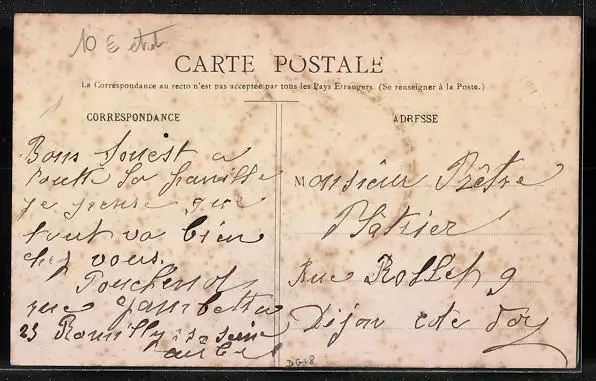 10 E
CARTE POSTALE
La Correspondance au recto n'est pas acceptée par tous les Pays Étrangers. (Se renseigner à la Poste.)
CORRESPONDANCE
ADRESSE
Bons a
toute la famille
je pense que
tout va bien
chez vous.
rue Gambetta
23 Romilly s seine
aube
Monsieur Prêtre
Plâtrier
Rue 9
Dijon cote d'or